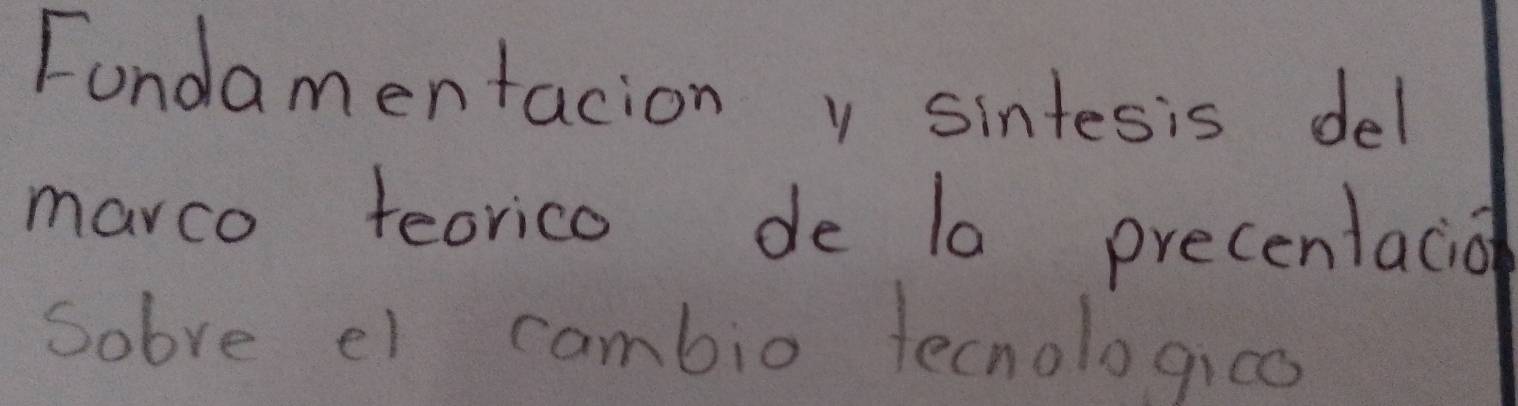 Fundamentacion y sintesis del
marco teorico de la precentación
Sobre el cambio tecnologico